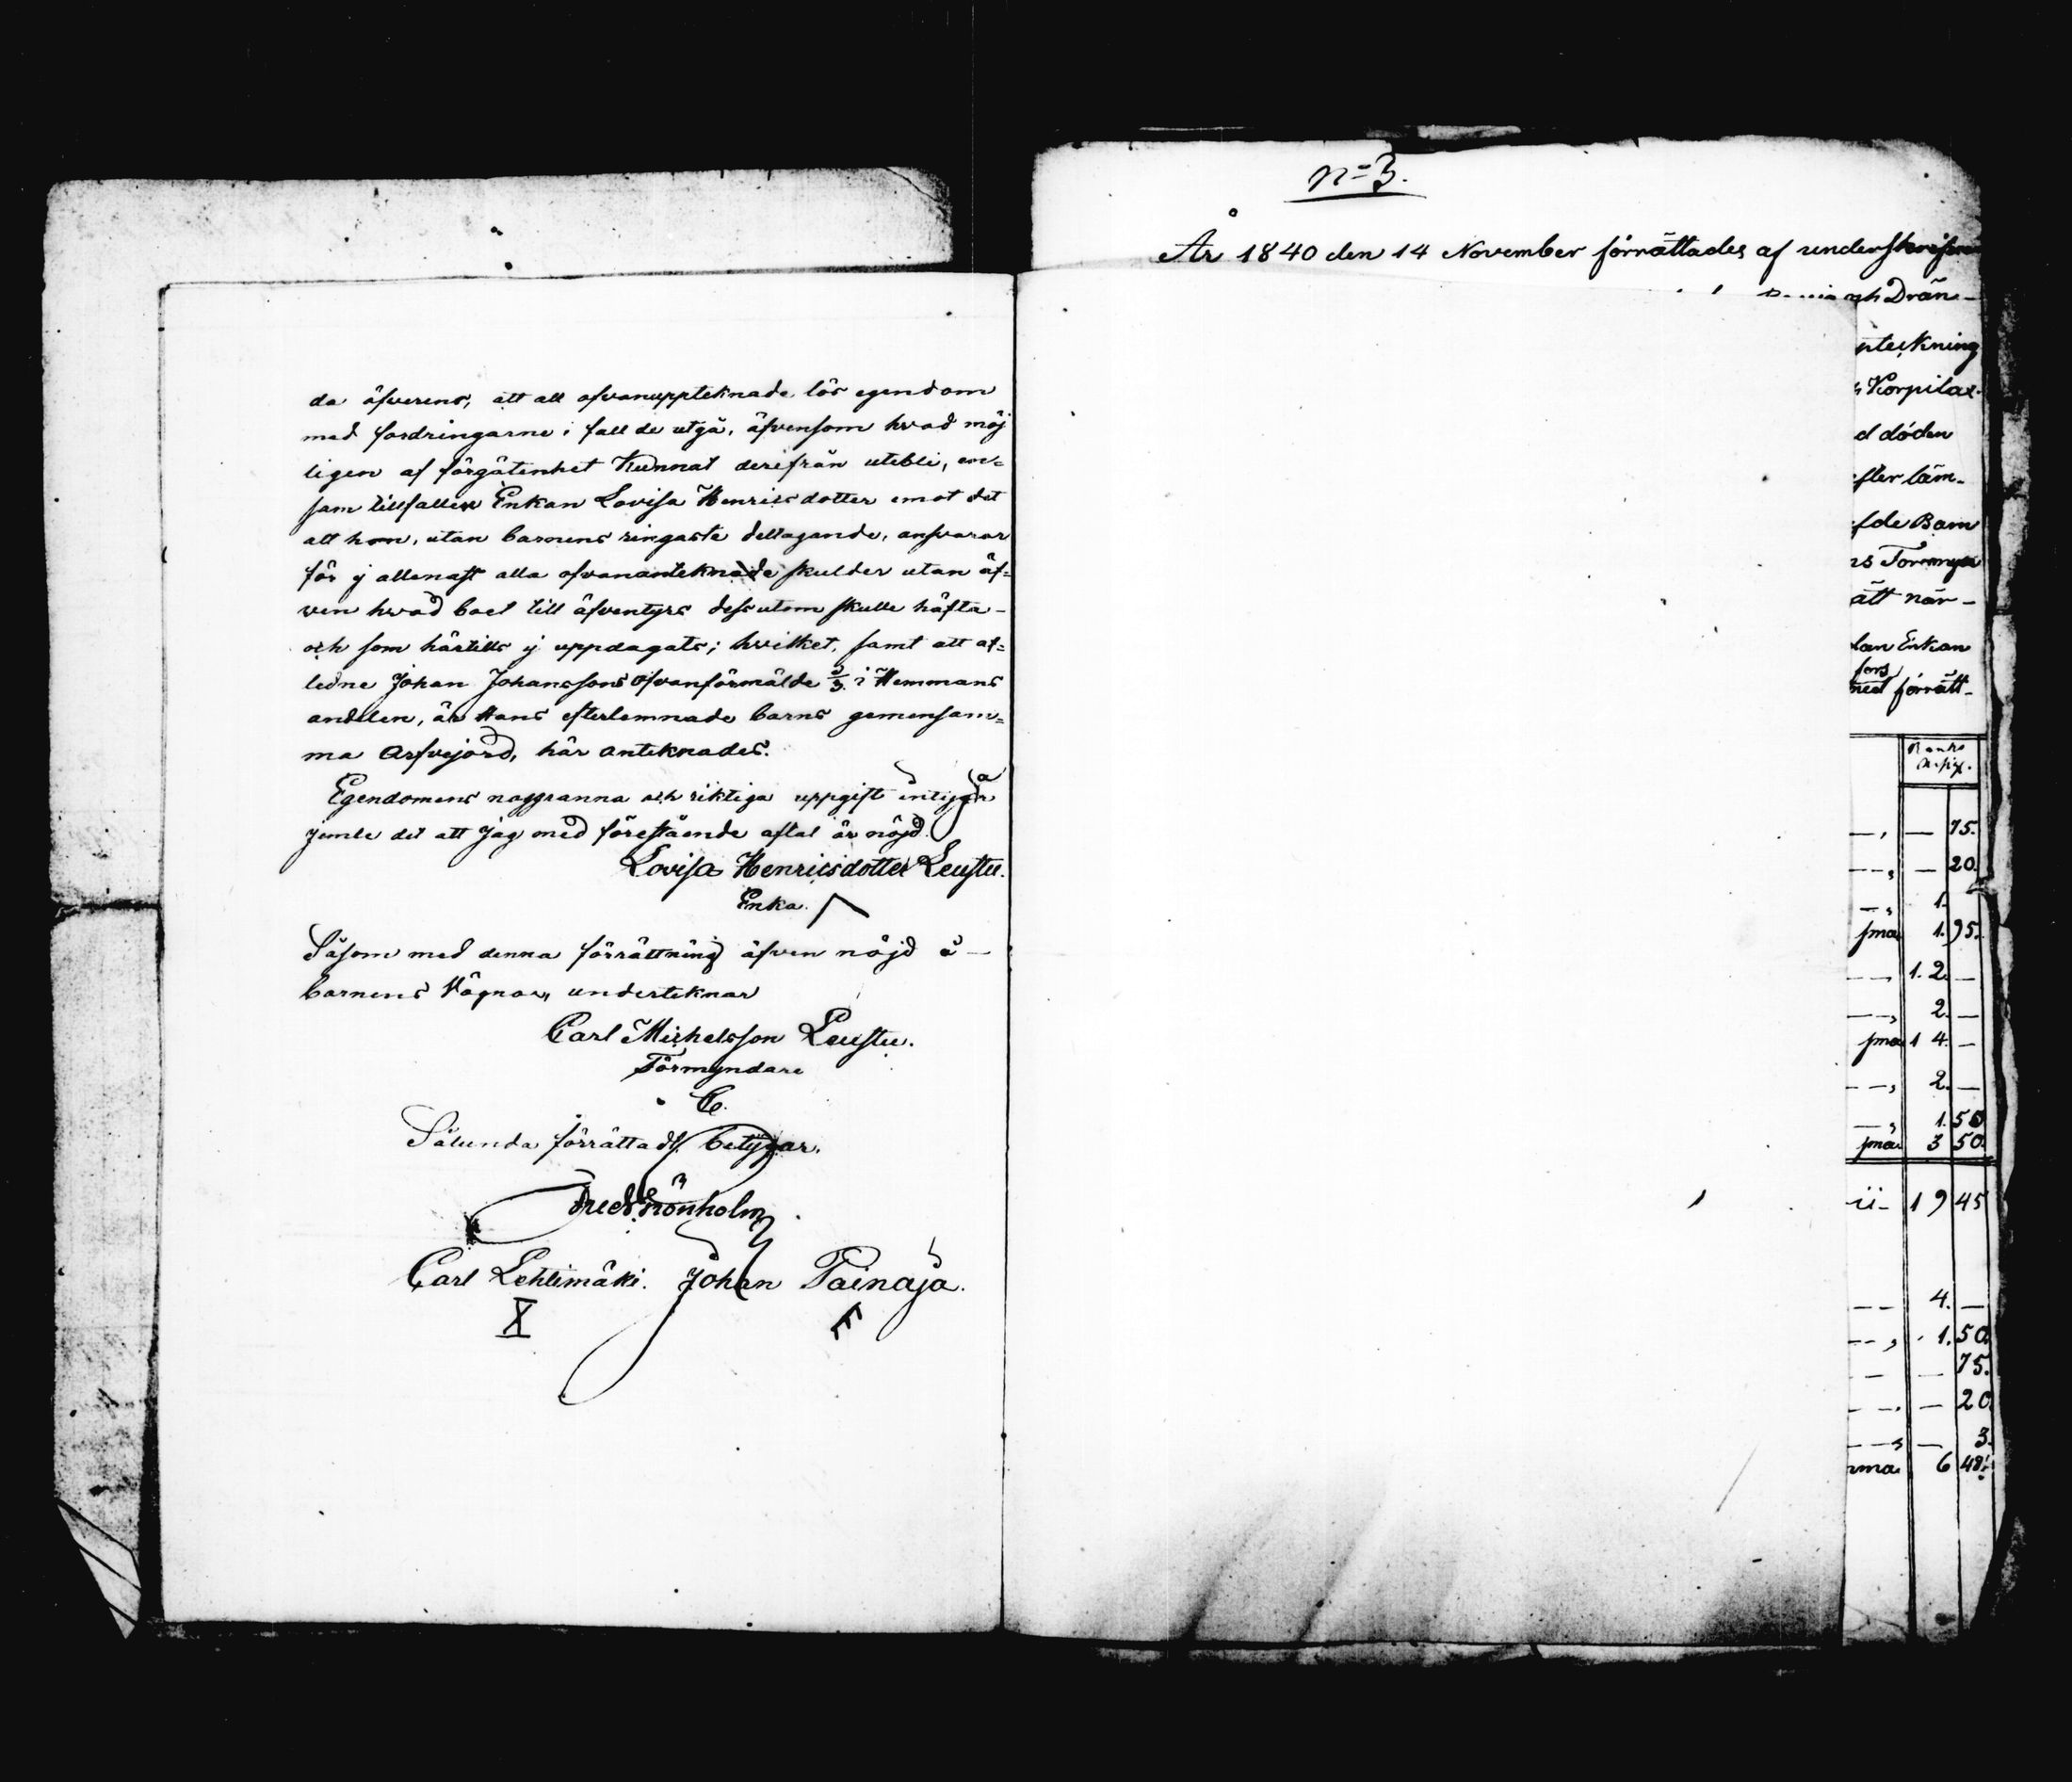 da äfverens, att all ofvanuppteknade lös egendom
med fordringarne i fall de utgå, äfvensom hvad möj
ligen af förgätenhet Kunnat derifrån utebli, en=
sam tillfaller Enkan Lovisa Henricsdotter emot det
att hon, utan barnens ringaste deltagande, ansvarar
för ej allenast alla ofvananteknade skulder utan äf=
ven hvad boet till äfventyrs dessutom skulle häfta
och som härtills ej uppdagats; hvilket, samt att af=
ledne Johan Johanssons ofvanförmälde 2/3 i Hemmans
andelen, är Hans efterlemnade barns gemensam=
ma Arfvejord, här anteknades.
Egendomens noggranna och riktiga uppgift intygar
jemte det att jag med förestående aftal är nöjd.
Lovisa Henricsdotter Leustu.
Enka.
Såsom med denna förrättning äfven nöjd å
barnens Vägnar, underteknar
Carl Michelsson Leustu.
Förmyndare
Sålunda förrättadt, betygar.
Carl Lehtimäki. Johan Painaja.
X
n=3.
År 1840 den 14 November förrättades af underskrifne
och Drän-
nteckning
Korpilax-
d döden
efter läm-
fde Barn
ns Förmyn
ätt när-
lan Enkan
fors
ned förrätt-
Banko
Assig.
— 75.
— 20.
1.
sma 1. 95.
1. 2. —
2. —
sma 1 4. —
2. —
1. 50
sma 3 50.
19 45
4. —
1. 50.
— 75.
— 20.
— 3.
mma 6 48.